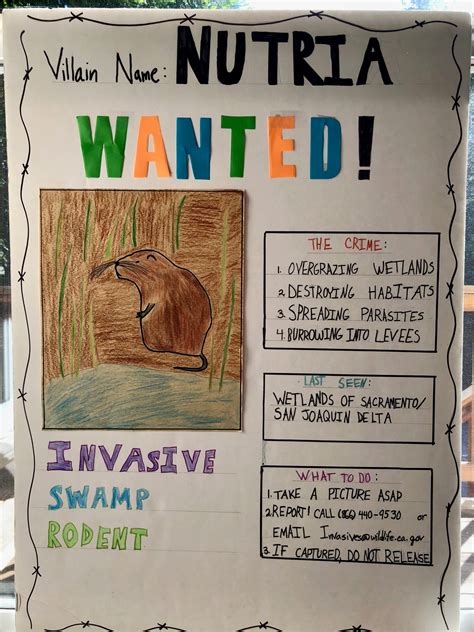 Villain Name: NUTRIA
WANTED!
THE CRIME:
1. OVERGRAZING WETLANDS
2. DESTROYING HABITATS
3. SPREADING PARASITES
4. BURROWING INTO LEVEES
LAST SEEN:
WETLANDS OF SACRAMENTO/
SAN JOAQUIN DELTA
INVASIVE
SWAMP
RODENT
WHAT TO DO:
1. TAKE A PICTURE ASAP
2 REPORT! CALL (866) 440-9530 or
EMAIL Invasives@wildlife.ca.gov
3. IF CAPTURED, DO NOT RELEASE